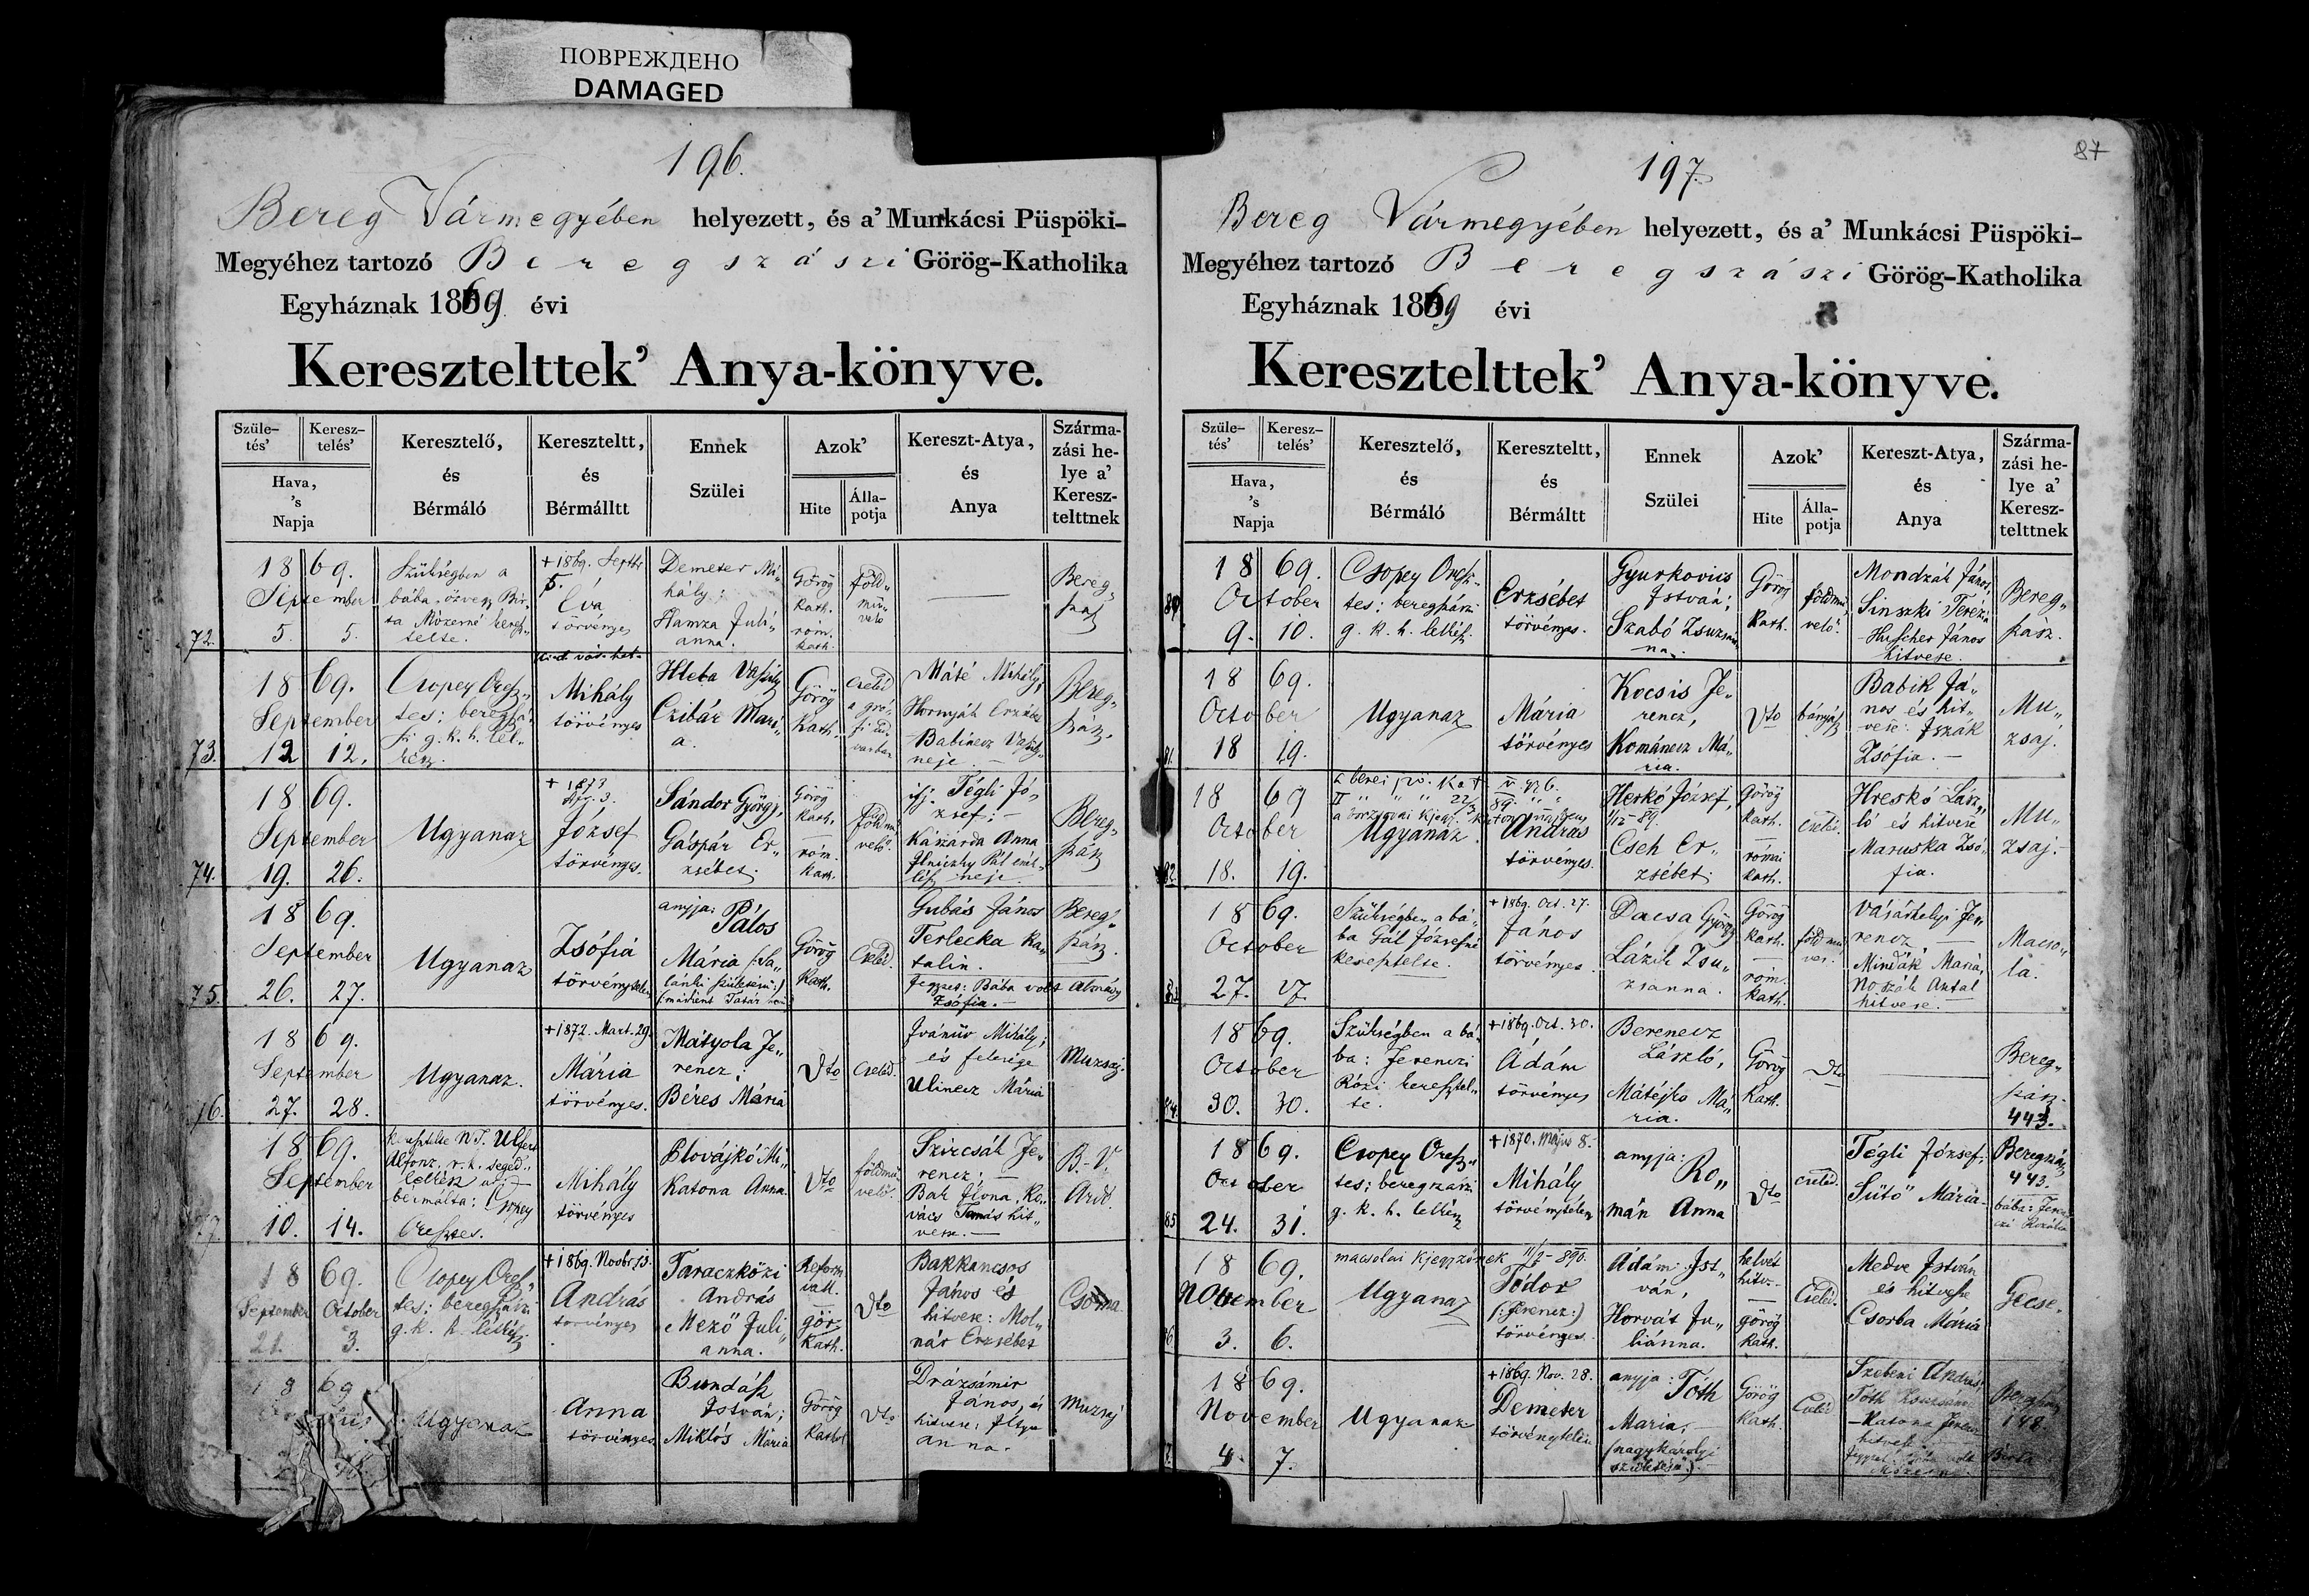 ПОВРЕЖДЕНО
DAMAGED
196.
Bereg Vármegyében helyezett, és a' Munkácsi Püspöki-
Megyéhez tartozó Beregszászi Görög-Katholika
Egyháznak 1869 évi
Keresztelttek' Anya-könyve.
Szüle-
tés'
Keresz-
telés'
Hava,
's
Napja
Keresztelő,
és
Bérmáló
Kereszteltt,
és
Bérmálltt
Ennek
Szülei
Azok'
Hite
Álla-
potja
Kereszt-Atya,
és
Anya
Szárma-
zási he-
lye a'
Keresz-
telttnek
72.
1869.
September
5. 5.
Szükségben a
bába, özvegy Bir-
ta Mózerné keresz-
telte.
+1869. Septbr
5.
Éva
törvényes
Demeter Mi„
hály;
Hamza Juli„
anna.
Görög
kath.
róm.
kath.
föld„
mű„
velő
Bereg„
szász
73.
1869.
September
12 12.
Csopey Oresz„
tes; beregszá„
szi g. k. h. lel„
kész.
Mihály
törvényes
Hleba Vaszily
Czibár Mari„
a.
Görög
Kath.
cseléd
a gró„
fi ud„
varban
Máté Mihály,
Hornyák Erzsébet
Babinecz Vaszily
neje.
Bereg„
szász.
74.
1869.
September
19. 26.
Ugyanaz
+ 1873
József
törvényes.
Sándor György,
Gáspár Er„
zsébet.
Görög
kath.
róm.
kath.
földmű„
velő.
ifj. Tégli Jó„
zsef;
Kaszarda Anna
neje.
Bereg„
szász
75.
1869.
September
26. 27.
Ugyanaz
Zsófia
törvénytelen
anyja: Pálos
Mária
Görög
Kath.
Cseléd.
Gubás János
Terlecka Ka„
talin.
Jegyzet: Bába volt Almásy
Zsófia.
Bereg„
szász.
76.
1869.
September
27. 28.
Ugyanaz.
+1872. Mart. 29.
Mária
törvényes.
Mátyola Fe„
rencz;
Béres Mária
Dto
Cseléd.
Ivánüv Mihály;
és felesége
Ulinecz Mária
Muzsaj.
77.
1869.
September
10. 14.
keresztelte N.T. Ulfert
Alfonz, r. k. segéd„
lelkész úr;
bérmálta: Csopey
Oresztes.
Mihály
törvényes
Plovájkó Mi„
Katona Anna.
Dto
földmű„
velő.
Szircsák Fe„
rencz;
Bak Ilona, Ko„
vács Tamás hit„
vese.
B.-V.
Ardó.
1869.
September October
21. 3.
Csopey Oresz„
tes; beregszászi
g. k. h. lelkész
+1869. Novbr 13.
András
törvényes
Taraczközi
András
Mező Juli„
anna.
Reform
vall.
gör„
kath.
Dto
Bakkancsos
János és
hitvese: Mol„
nár Erzsébet
Csoma.
1869
Ugyanaz
Anna
törvényes
Bundász
István;
Miklós Mária
Görög
Kathol
Dto
Drázsámir
János, és
hitvese; Iltyo
anna.
Muzsaj
87
197.
Bereg Vármegyében helyezett, és a' Munkácsi Püspöki-
Megyéhez tartozó Beregszászi Görög-Katholika
Egyháznak 1869 évi
Keresztelttek' Anya-könyve.
Szüle-
tés'
Keresz-
telés'
Hava,
's
Napja
Keresztelő,
és
Bérmáló
Kereszteltt,
és
Bérmáltt
Ennek
Szülei
Azok'
Hite
Álla-
potja
Kereszt-Atya,
és
Anya
Szárma-
zási he-
lye a'
Keresz-
telttnek
80.
1869.
October
9. 10.
Csopey Oresz„
tes; beregszászi
g. k. h. lelkész.
Erzsébet
törvényes.
Gyurkovics
István;
Szabó Zsuzsán„
na.
Görög
Kath.
földmű„
velő.
Mondzák János,
Sinszki Terézia
Huscher János
hitvese.
Bereg„
szász.
81.
1869.
October
18 19.
Ugyanaz
Mária
törvényes
Kocsis Fe„
rencz,
Kománecz Má„
ria.
Dto
bányász
Babik Já„
nos és hit„
vese: Iszák
Zsófia.
Mu„
zsaj.
82.
1869
October
18. 19.
Ugyanaz.
András
törvényes.
Herkó József,
Cseh Er„
zsébet.
Görög
kath.
római
kath.
cseléd.
Hreskó Lász„
ló és hitvese
Maruska Zsó„
fia.
Mu„
zsaj.
83.
1869.
October
27. 27.
Szükségben a bá„
ba Gál Józsefné
keresztelte.
+1869. Oct. 27.
János
törvényes.
Dacsa György
Lázik Zsu„
zsanna.
Görög
Kath.
róm.
Kath.
földmű„
ves.
Vásárhelyi Fe„
rencz,
Mindák Mária,
Noszák Antal
hitvese.
Macso„
la.
84.
1869.
October
30. 30.
Szükségben a bá„
ba: Ferenczi
Rózi keresztel„
te.
+1869. Oct. 30.
Ádám
törvényes
Berenecz
László,
Mátéjko Má„
ria.
Görög
Kath.
Dto
Bereg„
szász.
443.
85.
1869.
October
24. 31.
Csopey Oresz„
tes; beregszászi
g. k. h. lelkész
+1870. Május 8.
Mihály
törvénytelen
anyja: Ro„
mán Anna
Dto
cseléd.
Tégli József;
Sütő Mária.
Beregszász
443.
bába: Feren„
czi Rozália
86.
1869.
November
3. 6.
Ugyanaz
Tódor
(:Ferencz:)
törvényes.
Ádám Ist„
ván,
Horvát Ju„
liánna.
helvét
hitv.
görög
Kath.
Cseléd.
Medve István
és hitvese
Csorba Mária
Gecse.
1869.
November
4. 7.
Ugyanaz
+1869. Nov. 28.
Demeter
törvénytelen
anyja: Tóth
Mária,
(nagykárolyi
születésű)
Görög
Kath.
Cseléd
Szebeni András,
Tóth Zsuzsánna
Katona Ferencz
hitvese
Beregszász
148.